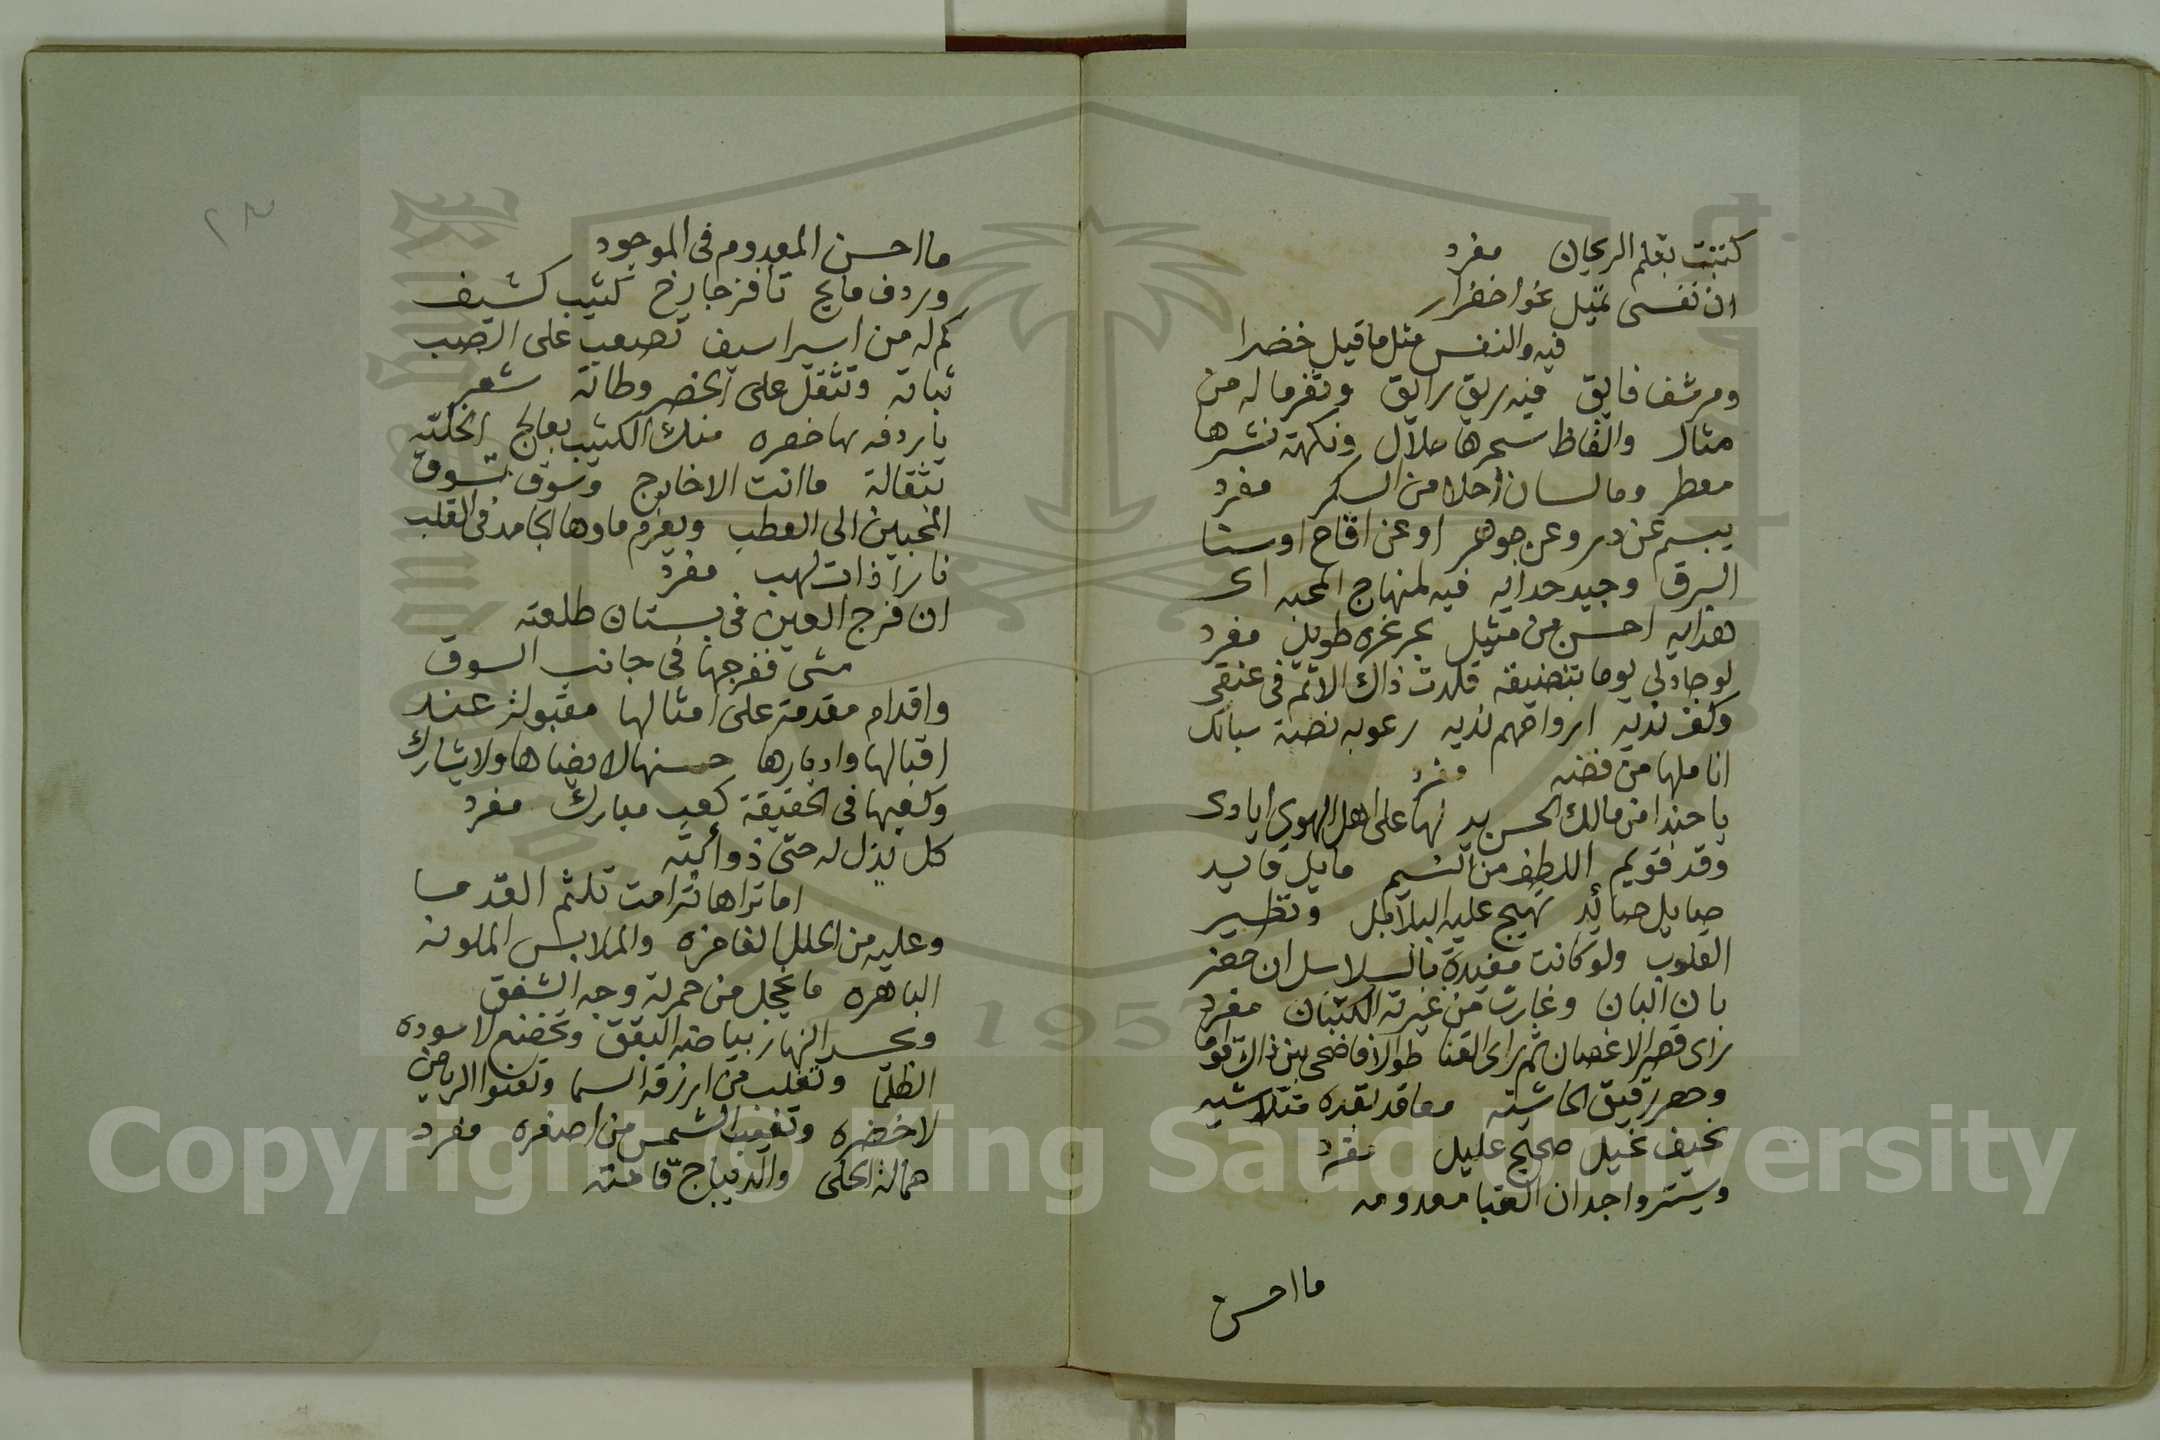 كتبت بقلم الريحان مفرد
ان نفسى تميل نحو اخضرار
فيه والنفس مثل ما قيل خضرا
ومرشف فايق فيه ريق رايق وثغر ما له من
مثال والفاظ سحرها حلال ونكهة نشرها
معطر وما لسان احلا من السكر مفرد
يبسم عن در وعن جوهر او عن اقاح او سنا
البرق وجيد جدايه فيه لمنهاج المحبه اى
هدايه احسن من مثيل بحر غره طويل مفرد
لو جاد لى يوما بتضنيقه قلدت ذاك الاثم فى عنقى
وكف نديه ابروا فهم لديه رعوبه نضة سبايك
اناملها من فضه مفرد
يا حبذا من مالك الحسن يد لها على اهل الهوى ايادى
وقد قويم اللطف من النسيم مايل قايد
صايل صائد تهيج عليه البلابل وتطير
القلوب ولو كانت مقيدة بالسلاسل ان خطر
بان البان وغارت من غيرته الكثبان مفرد
راى قصر الاغصان ثم راى القنا طوالا فاضحى بين ذاك قوما
وخصر رقيق الحاشيته معاقد نقده متلاشيه
نحيف نحيل صحيح عليل مفرد
وستر واجدان القبا معدومه
ما احسن
ما احسن المعدوم فى الموجود
وردف مايج نافز جارح كثيب كشيف
كم له من اسير اسيف تصعب على الصب
ثباته وتثقل على الخصر وطاته شعر
يا ردفه بها خصره منك الكثيب بعالج الخليه
بثقالة ما انت الا خارج وسوق تسوق
المحبين الى العطب ويضرم ماوها الجامد فى القلب
نارا ذات لهب مفرد
ان فرج العين فى بستان طلعته
مشى ففرجها فى جانب السوق
واقدام مقدمة على امثالها مقبولة عند
اقبالها وادبارها حسنها لا يضاها ولا يشارك
وكعبها فى الحقيقة كعب مبارك مفرد
كل يذل له حتى ذوائبه
اما تراها ترامت تلثم القدما
وعليه من الحلل الفاخره والملابس الملونه
الباهره ما يخجل من حمرته وجه الشفق
ويحسد النهار بياضه اليقق وتخضع لاسوده
الظلما وتغلب من ازرقه السما وتعنوا الرياض
لاخضره وتغيب الشمس من اصفره مفرد
حمالة الحلى والديباج قامته
٢٣
Copyright © King Saud University
1957